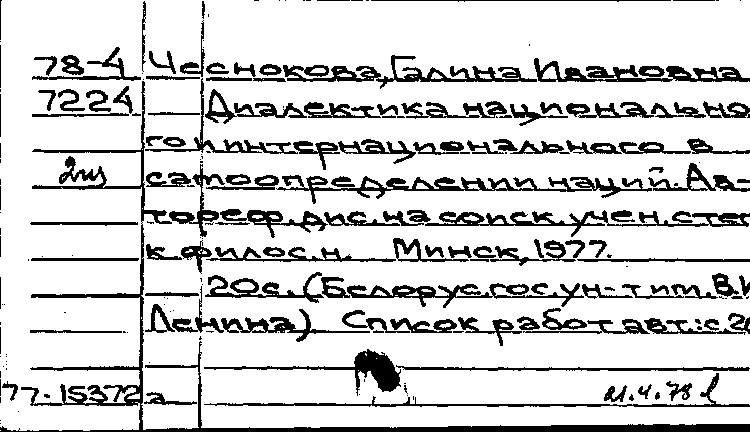 78-4 Чеснокова, Галина Ивановна
7224 Диалектика национально
го и интернационального в
2из самоопределении наций. Ав-
тореф. дис. на соиск. учен. степ
к. филос. н. Минск, 1977.
20 с. (Белорус. гос. ун-т им. В. И
Ленина) Список работ авт.: с. 20
77-15372 а 21.4.78